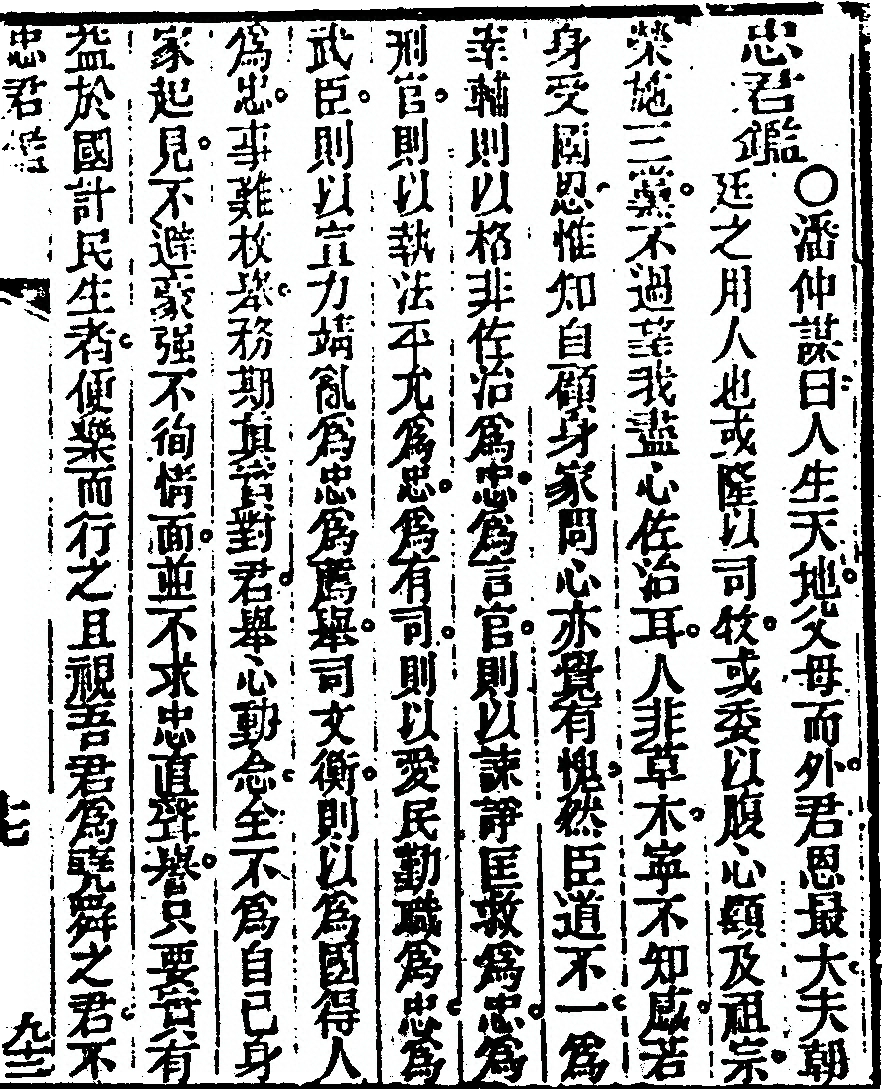 忠君鑑
○潘仲謀曰人生天地父母而外君恩最大夫朝
廷之用人也或隆以司牧或委以腹心顯及祖宗
榮施三黨不過望我盡心佐治耳人非草木寧不知感若
身受國恩惟知自顧身家問心亦覺有愧然臣道不一為
宰輔則以格非佐治為忠為言官則以諫諍匡救為忠為
刑官則以執法平允為忠為有司則以愛民勤職為忠為
武臣則以宣力靖亂為忠為薦舉司文衡則以為國得人
為忠事難枚舉務期真實對君舉心動念全不為自己身
家起見不避豪强不徇情面並不求忠直聲譽只要實有
益於國計民生者便樂而行之且視吾君為堯舜之君不
忠君鑑
七
九十三